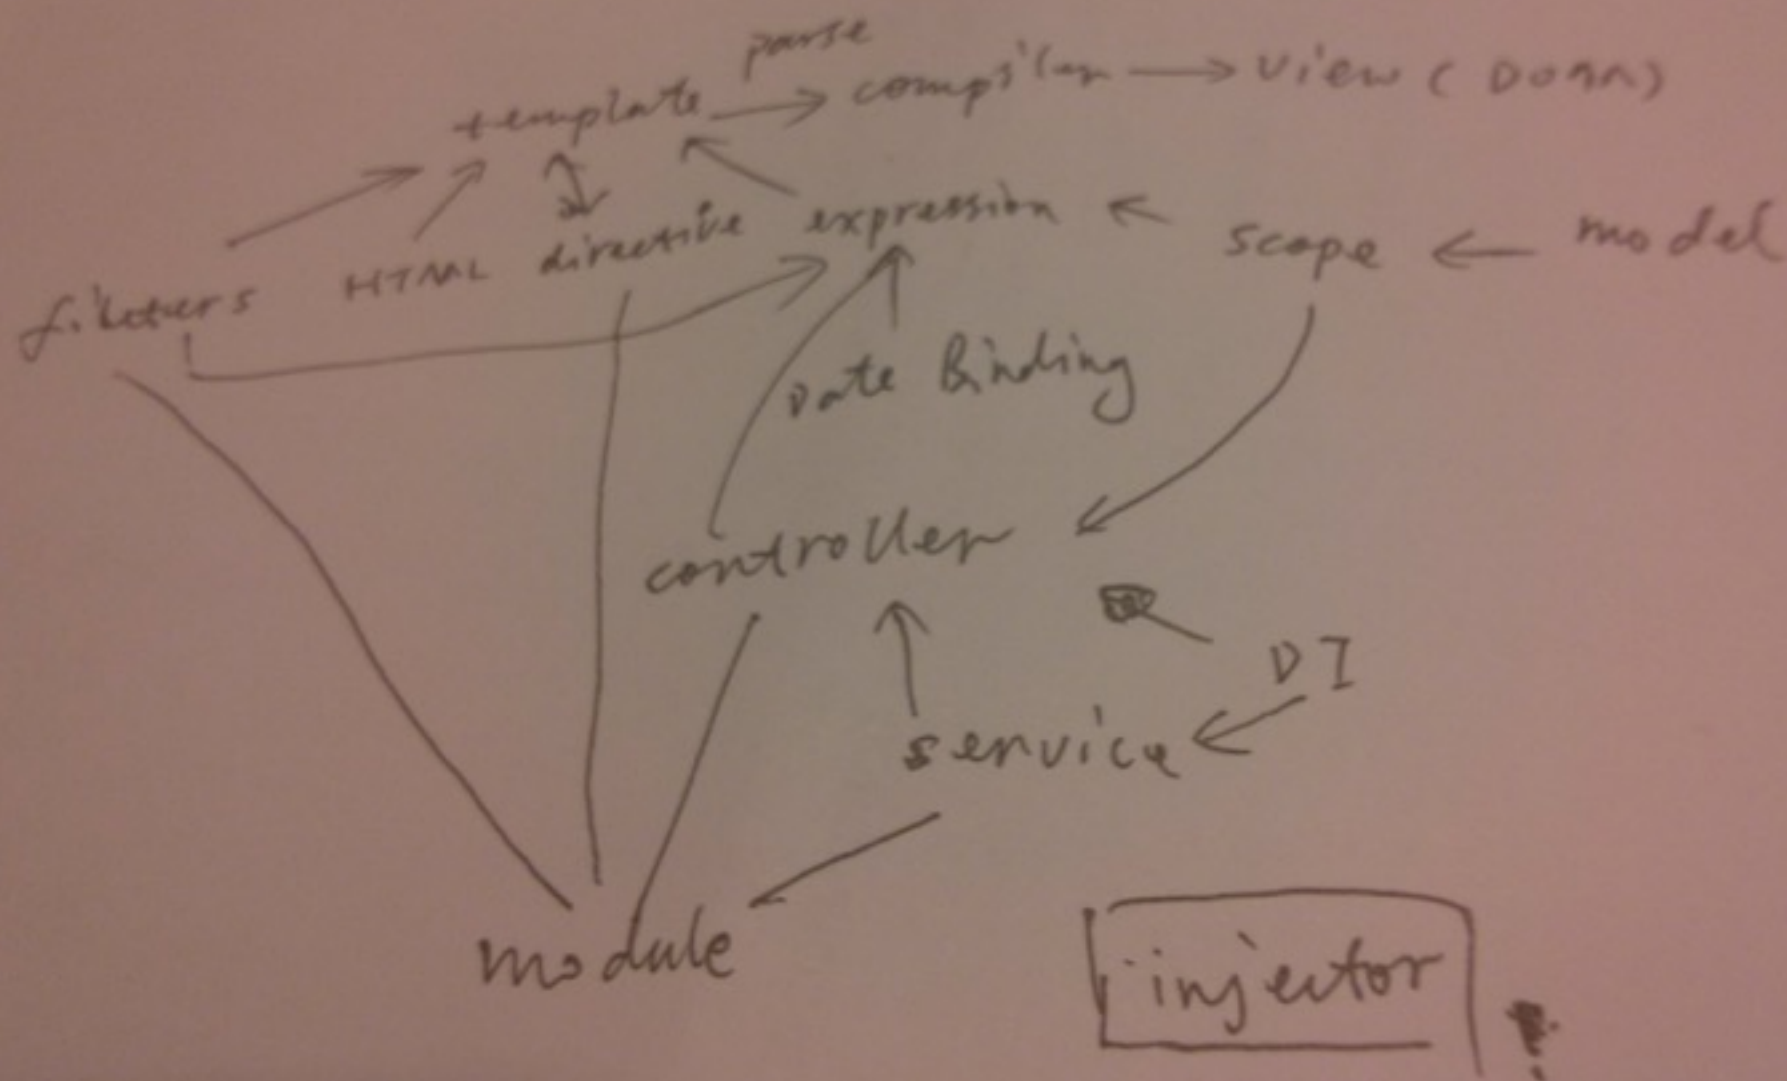 parse
template compiler view (DOM)
filters HTML directive expression scope model
Date Binding
controller
DI
service
module
injector